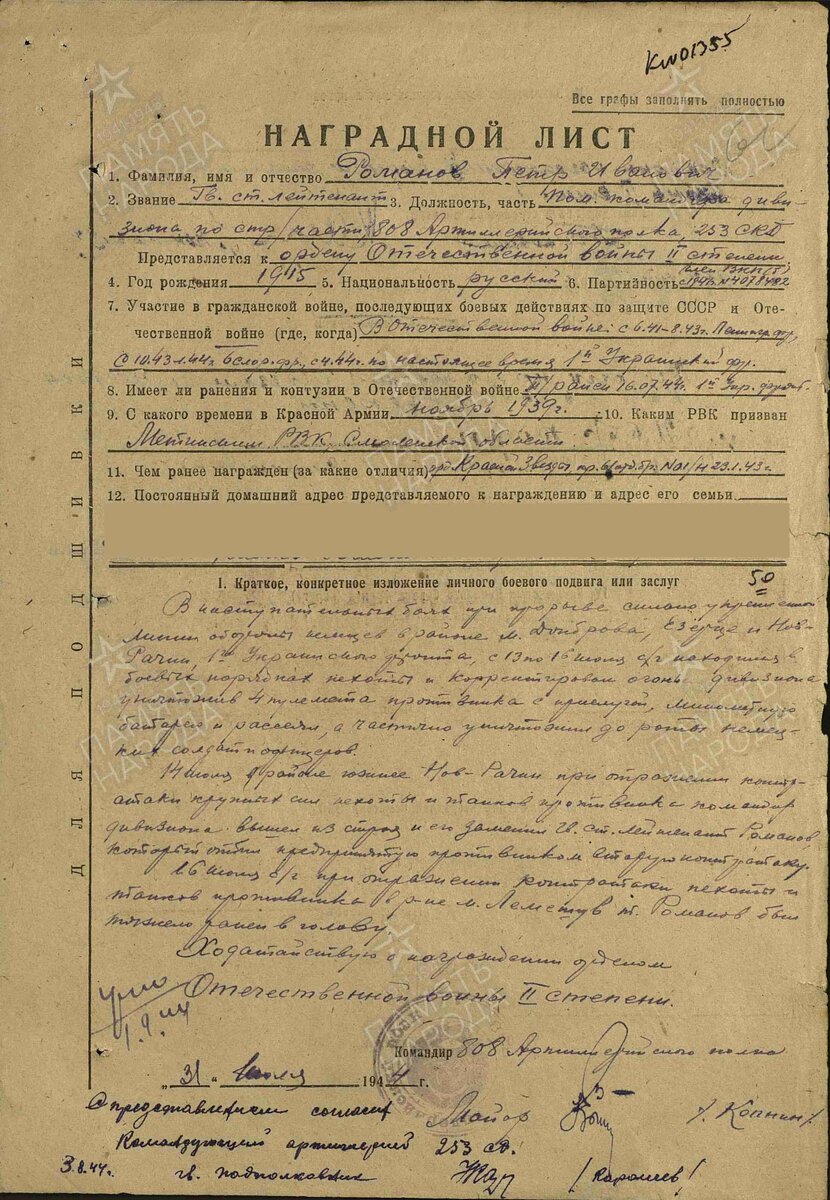 KW01355
Все графы заполнять полностью
НАГРАДНОЙ ЛИСТ
1. Фамилия, имя и отчество Романов Петр Иванович
2. Звание Гв. ст. лейтенант 3. Должность, часть Пом. командира диви-
зиона по стр/части, 808 Артиллерийского полка, 253 СКД
Представляется к ордену Отечественной войны II степени
4. Год рождения 1915 5. Национальность русский 6. Партийность член ВКП(б)
№4078402
7. Участие в гражданской войне, последующих боевых действиях по защите СССР и Оте-
чественной войне (где, когда) В Отечественной войне: с 6.41-8.43г. Ленингр. фр,
с 10.43 1.44г. Белор. фр., с 4.44г. по настоящее время 1й Украинский фр.
8. Имеет ли ранения и контузии в Отечественной войне ранен 16.07.44г. 1й Укр. фронт
9. С какого времени в Красной Армии ноябрь 1939г. 10. Каким РВК призван
РВК, Смоленской области
11. Чем ранее награжден (за какие отличия) Красной Звезды, пр. №01/н 23.1.43г.
12. Постоянный домашний адрес представляемого к награждению и адрес его семьи
I. Краткое, конкретное изложение личного боевого подвига или заслуг
50
В наступательных боях при прорыве сильно укрепленной
линии обороны немцев в районе м. Доброва, Езерце и Нов-
Рачин, 1го Украинского фронта, с 13 по 16 июля с/г находился в
боевых порядках пехоты и корректировал огонь дивизиона
уничтожив 4 пулемета противника с прислугой, минометную
батарею и рассеял, а частично уничтожил до роты немец-
ких солдат и офицеров.
14 июля в районе южнее Нов-Рачин при отражении контр-
атаки крупных сил пехоты и танков противника командир
дивизиона вышел из строя и его заменил Гв. ст. лейтенант Романов,
который отбил предпринятую противником вторую контратаку.
16 июля с/г при отражении контратаки пехоты и
танков противника в р-не м. т. Романов был
тяжело ранен в голову.
Ходатайствую о награждении орденом
Отечественной войны II степени.
Командир 808 Артиллерийского полка
„31“ Июля 1944 г.
Майор /Копнин/
С представлением согласен
Командующий артиллерией 253 сд.
3.8.44г. гв. подполковник /Каращев/
ДЛЯ ПОДШИВКИ
ПАМЯТЬ НАРОДА